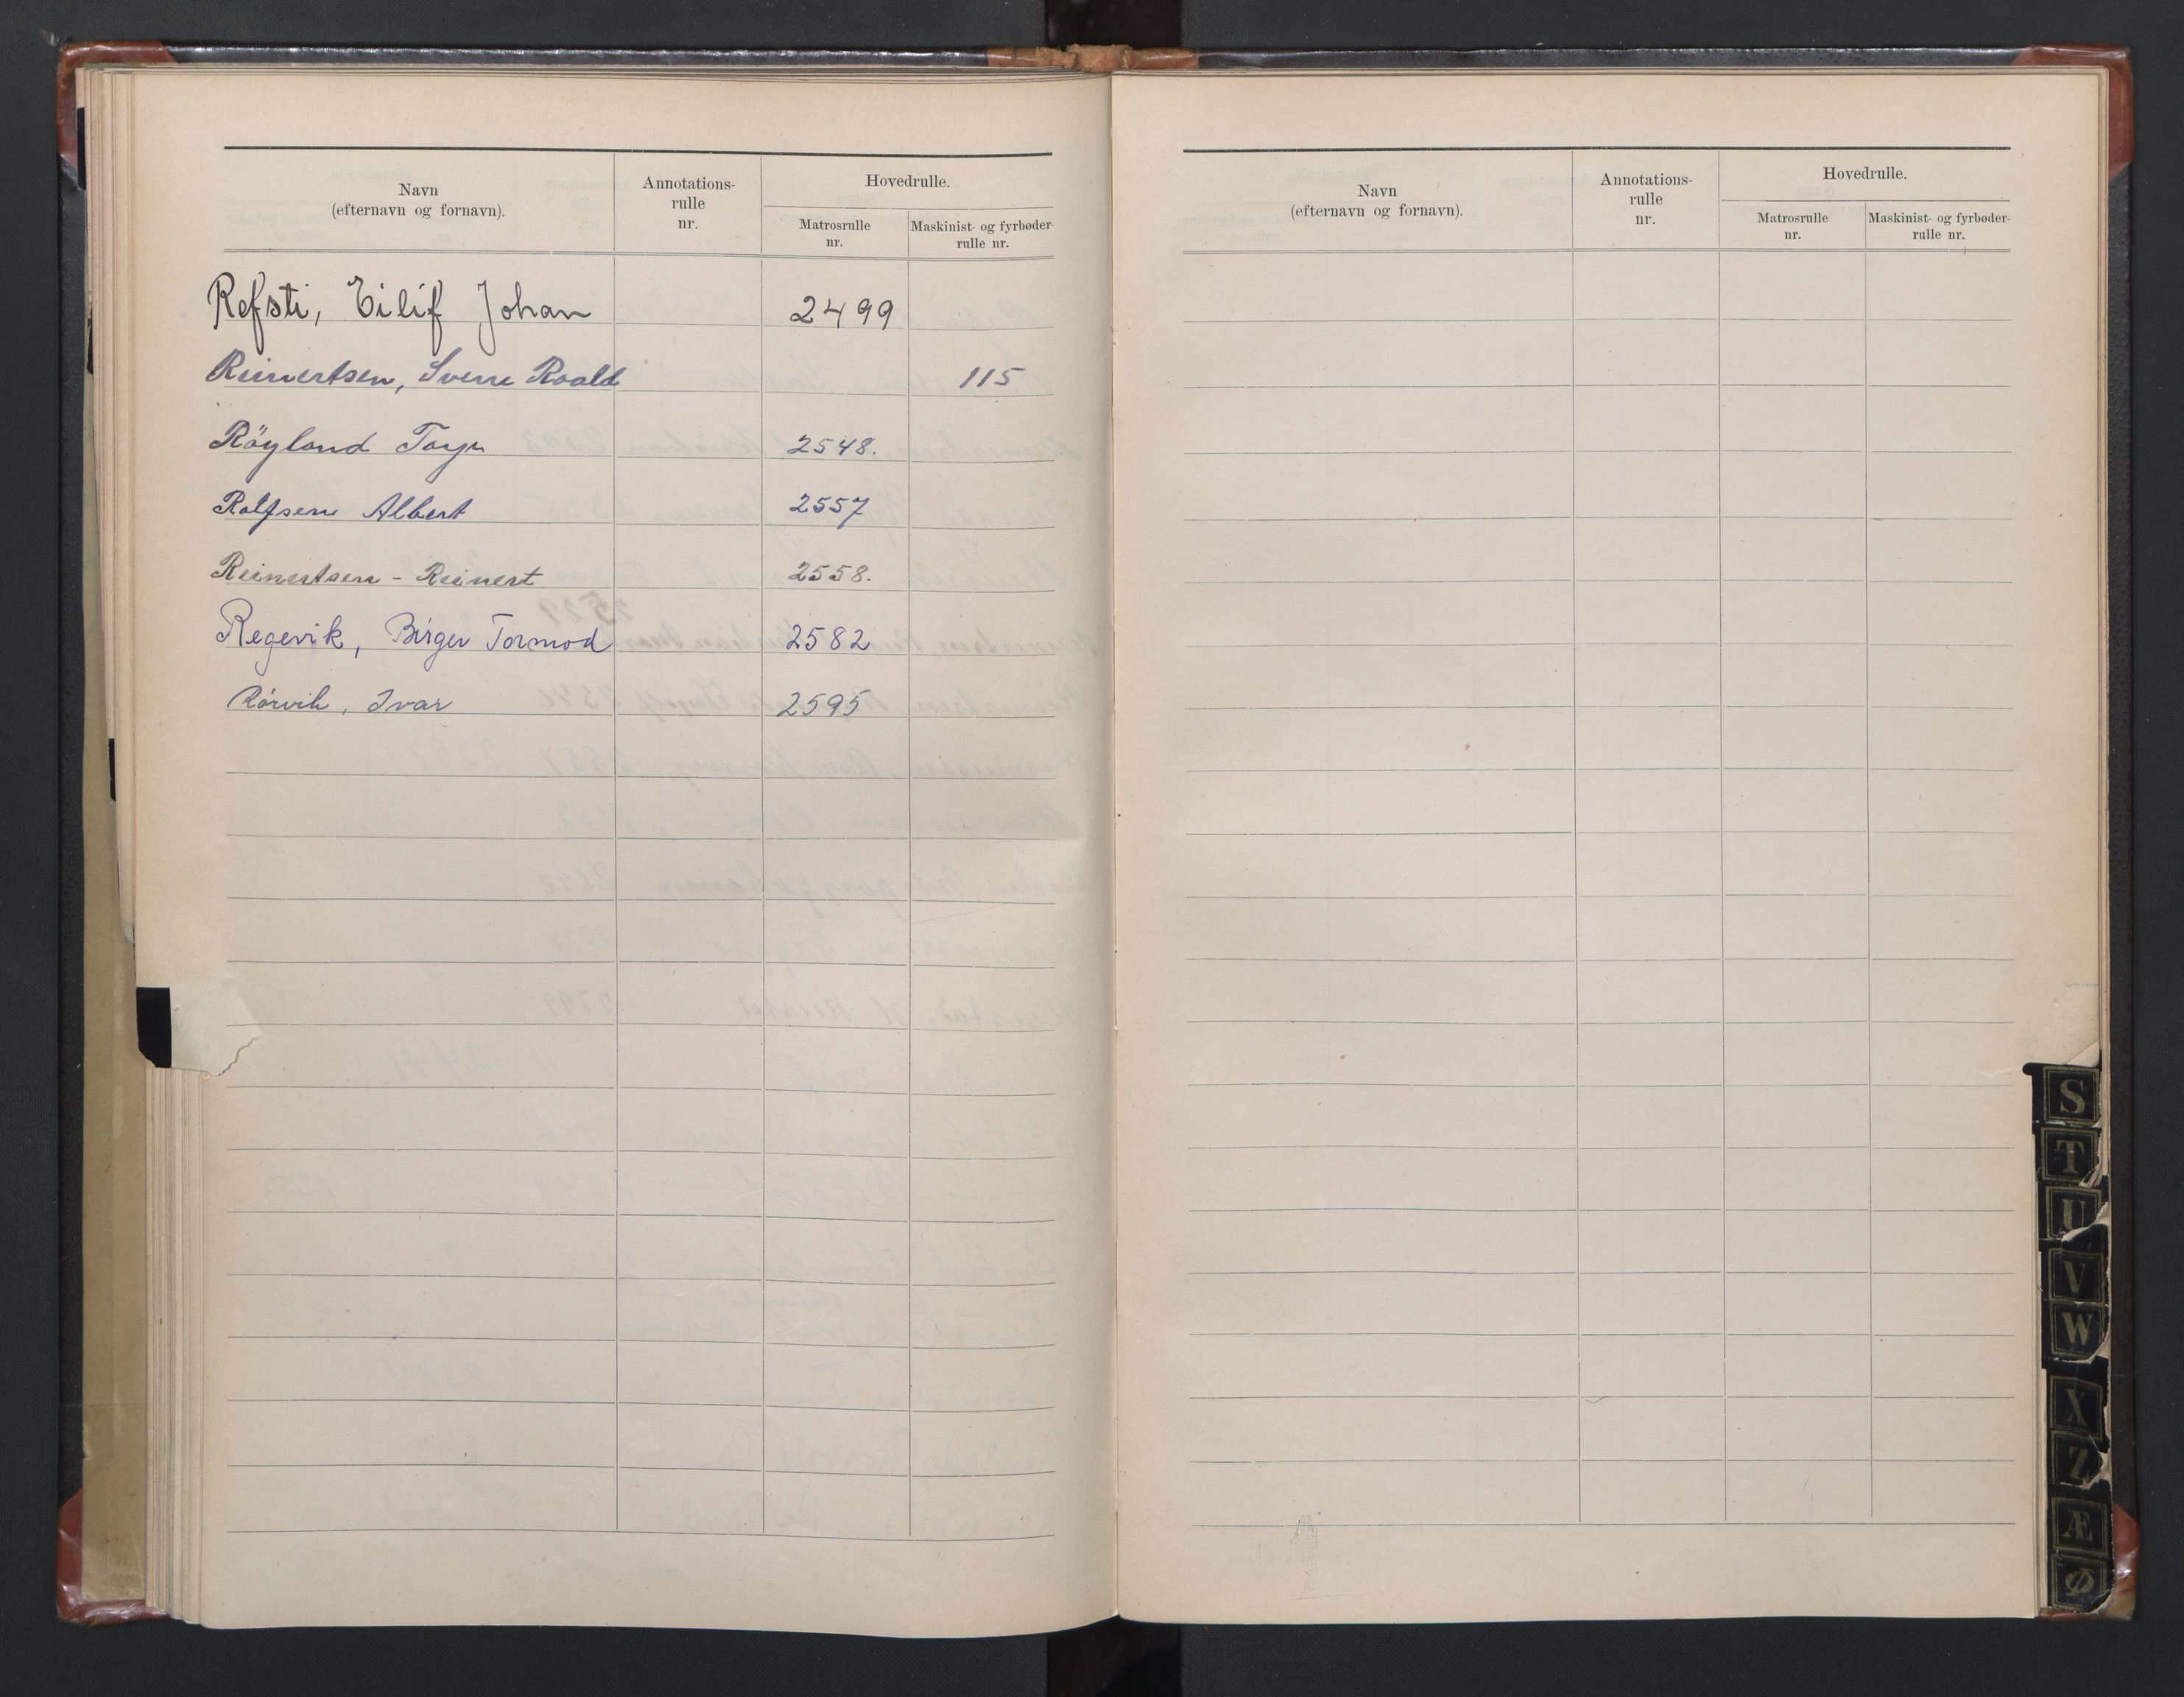 Navn
(efternavn og fornavn).
Annotations-
rulle
nr.
Hovedrulle.
Matrosrulle
nr.
Maskinist- og fyrbøder-
rulle nr.
Refsti, Eilif Johan 2499
Reinertsen, Sverre Roald 115
Röyland 2548.
Rolfsen Albert 2557
Reinertsen - Reinert 2558.
Regevik, Birger Tormod 2582
Rörvik, Ivar 2595
Navn
(efternavn og fornavn).
Annotations-
rulle
nr.
Hovedrulle.
Matrosrulle
nr.
Maskinist- og fyrbøder-
rulle nr.
S
T
U
V
W
X
Z
Æ
Ø